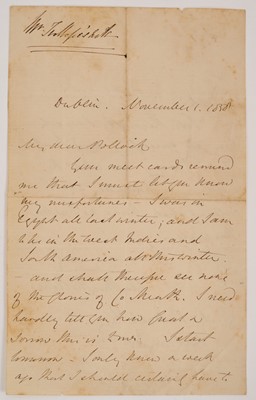 Dublin. November 1. 1858
My dear Pollock
Your meet cards remind
me that I must let you know
my misfortunes - I was in
Egypt all last winter, and I am
to be in the West Indies and
South America all this winter
- and shall therefore see none
of the Glories of Co Meath. I need
hardly tell you how great a
sorrow this is to me. I start
tomorrow & only knew a week
ago that I should certainly have to